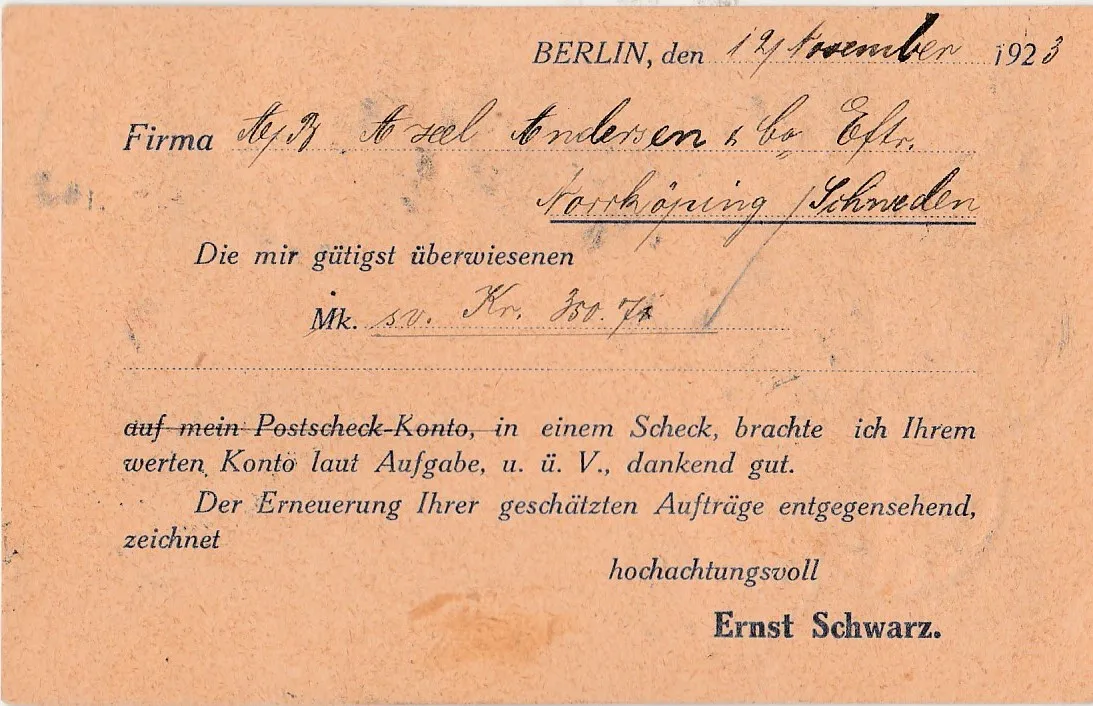 BERLIN, den 12/November 1923
Firma A/B Axel Andersen & Co, Eftr.
Norrköping / Schweden
Die mir gütigst überwiesenen
Mk. sv. Kr. 350.
auf mein Postscheck-Konto, in einem Scheck, brachte ich Ihrem
werten Konto laut Aufgabe, u. ü. V., dankend gut.
Der Erneuerung Ihrer geschätzten Aufträge entgegensehend,
zeichnet
hochachtungsvoll
Ernst Schwarz.